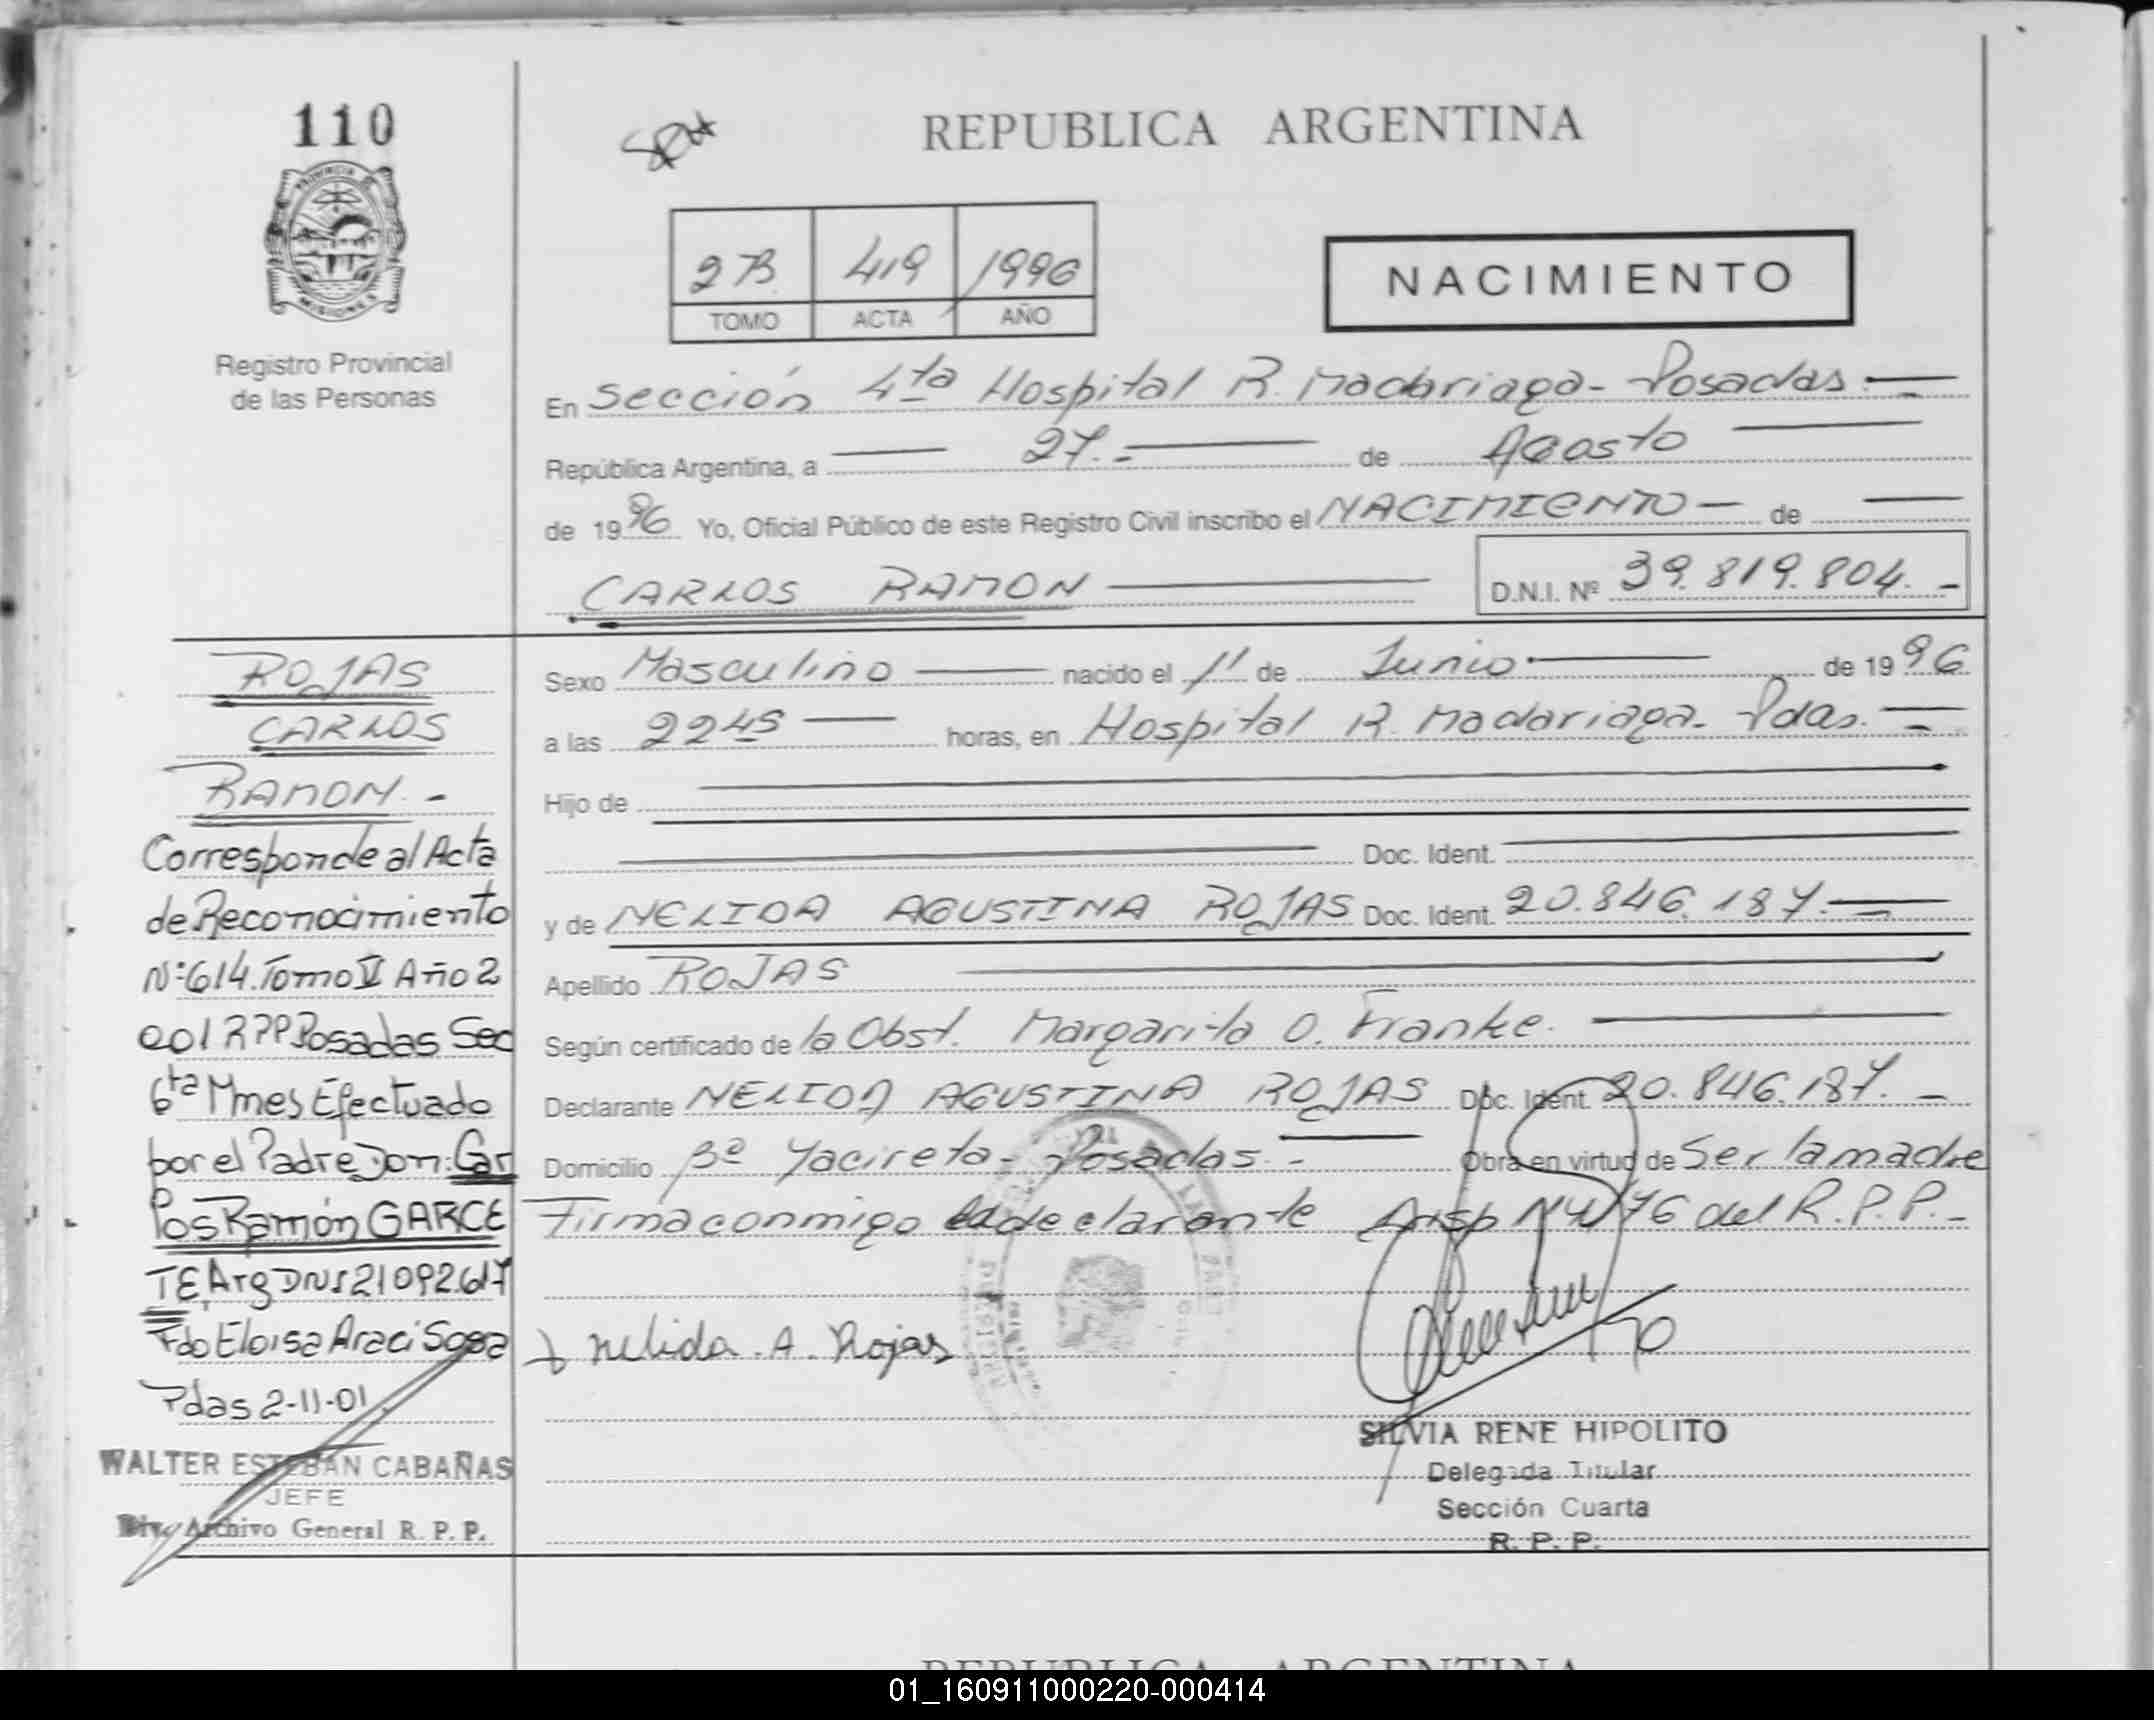 110
REPUBLICA ARGENTINA
PROVINCIA DE
MISIONES
2B 419 1996
TOMO ACTA AÑO
NACIMIENTO
Registro Provincial
de las Personas
En Sección 4ta Hospital R. Madariaga - Posadas. —
República Argentina, a — 27. — de Agosto —
de 1996 Yo, Oficial Público de este Registro Civil inscribo el NACIMIENTO — de —
CARLOS RAMON — D.N.I. Nº 39.819.804. -
Sexo Masculino — nacido el 1º de Junio — de 1996
a las 22 45 — horas, en Hospital R. Madariaga - Pdas. —
Hijo de —
— Doc. Ident. —
y de NELIDA AGUSTINA ROJAS Doc. Ident. 20.846.187. —
Apellido ROJAS —
Según certificado de la Obst. Margarita O. Franke. —
Declarante NELIDA AGUSTINA ROJAS Doc. Ident. 20.846.187. -
Domicilio Bº Yacireta - Posadas. - Obra en virtud de Ser la madre
Firma conmigo la declarante 76 del R.P.P. -
Nelida . A . Rojas
SILVIA RENE HIPOLITO
Delegada Titular
Sección Cuarta
R. P. P.
ROJAS
CARLOS
RAMON. -
Corresponde al Acta
de Reconocimiento
Nº 614. Tomo V Año 2
001 RPP Posadas Sec
6ta Mnes Efectuado
por el Padre Don: Car
los Ramón GARCE
TE Arg DNI 21092617
Fdo Eloisa Araci Sosa
Pdas 2-11-01
WALTER ESTEBAN CABAÑAS
JEFE
Div. Archivo General R. P. P.
REPUBLICA ARGENTINA
01_160911000220-000414